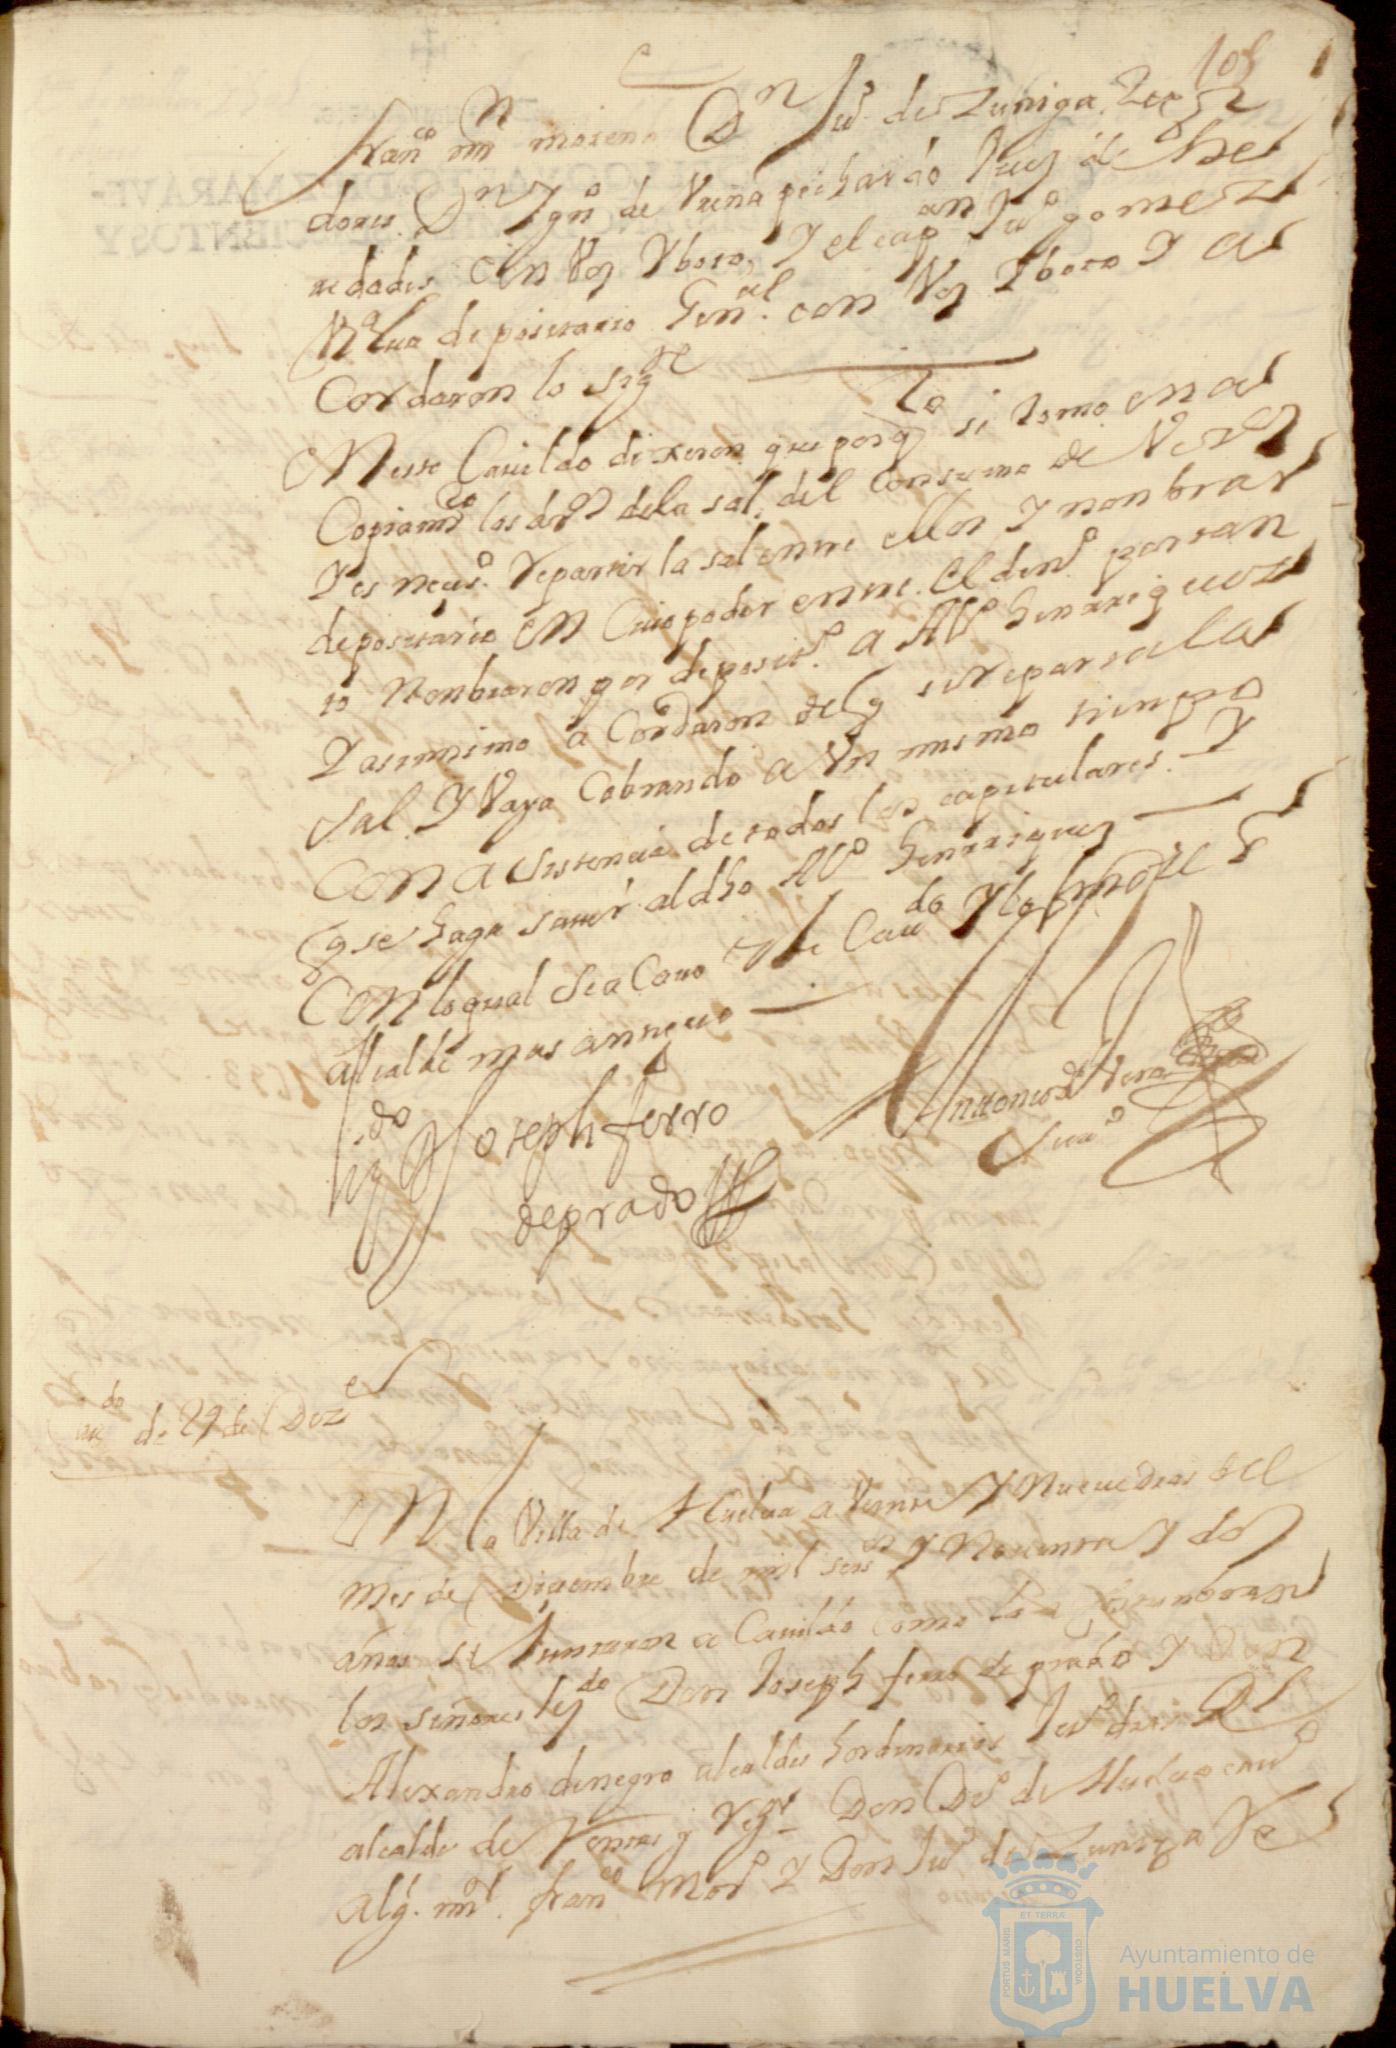 105
Franco mīn moreno Dn Juo de Zuñiga Regi
dores. Dn Igno de Vreña pichardo Juez de the
nedades Con Voz Yboto, Y el capan Juo gomez
depositario Genal. con Voz Yboto Y a
Cordaron lo sigte
Nesse Cauildo dixeron que porqto se tomo en a
Copiammto los drs dela sal, del Consumo de Vezos
Y es neceso. Repartir la sal entre ellos Y nonbrar
depositario En Cuio poder entre. El dino por tan
to Nonbraron por deposito. a Alo henrriquez
Y assimismo a Cordaron de q se reparta la
Sal. Y Vaya Cobrando a Vn mismo tiempo
Con a sistencia de todos los capitulares. Y
q se haga sauer al dho Alo henrriquez
Con lo qual se a Cauo este Caudo Y lo firmo el
alcalde mas antiguo
Lizdo D Joseph ferro
de prado
Antonio de Vera
Suao
Caudo de 29 de Dize
EN la Villa de Huelua a Veinte Y Nueue dias del
Mes de Diziembre de mil seiscos Y Nouenta Y dos
años se Juntaron a Cauildo Como lo a Costunbran
los señores lizdo Don Joseph ferro de prado Y Don
Alexandro denegro alcaldes hordinarios
alcalde de Don Do de Huelua
Alg. mr. Franco Moro Y Don Juo de Zuniga Re
PORTUS MARIS ET TERRÆ CUSTODIA
Ayuntamiento de
HUELVA